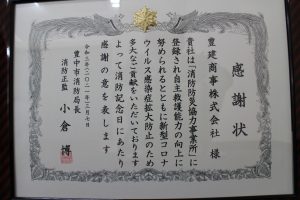 感謝状
豊建商事株式会社 様
貴社は「消防防災協力事業所」に
登録され自主救護能力の向上に
努められるとともに新型コロナ
ウイルス感染症拡大防止のため
多大なご貢献をいただいております
よって消防記念日にあたり
感謝の意を表します
令和三年(二〇二一年)三月七日
豊中市消防局長
消防正監 小倉 博